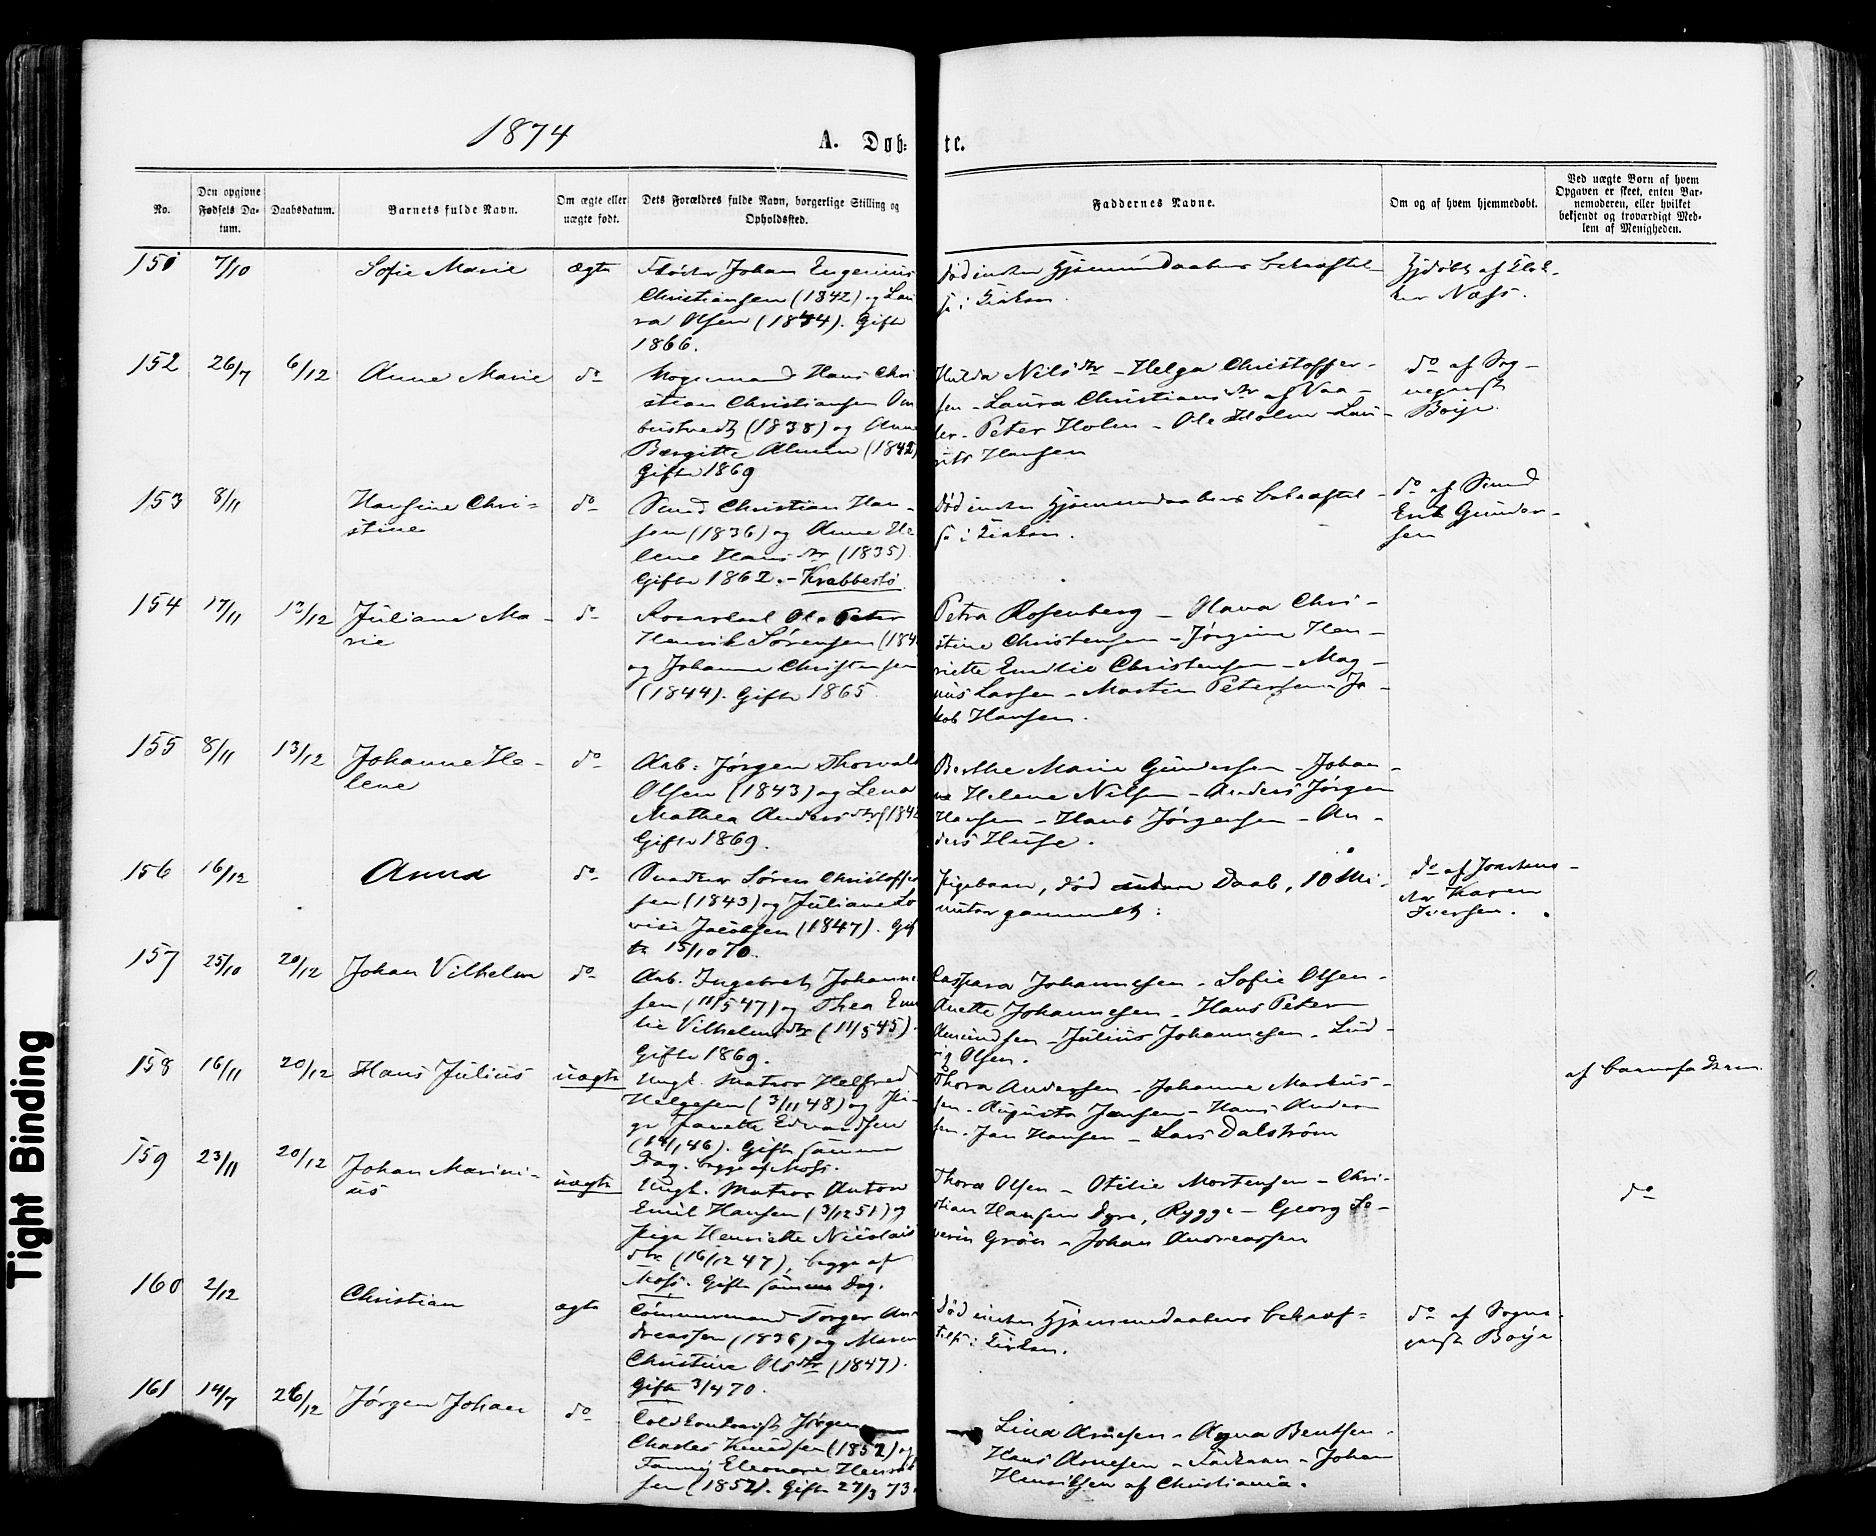 1874
A. Døb= te.
No.
Den opgivne Fødsels Da-tum.
Daabsdatum.
Barnets fulde Navn.
Om ægte eller uægte født.
Dets Forældres fulde Navn, borgerlige Stilling og Opholdssted.
Faddernes Navne.
Om og af hvem hjemmedøbt.
Ved uægte Børn af hvem Opgaven er skeet, enten Bar-nemoderen, eller hvilket bekjendt og troværdigt Med-lem af Menigheden.
151 7/10 Sofie Marie ægte
Johan Eugenius
Christiansen (1842) og Lau
ra Olsen (1844). Gift
1866.
død inden Hjemmedaabens bekræftel-
se i Kirken.
Hjdøbt af Klok
ker Næss.
152 26/7 6/12 Anne Marie do
Hans Chri
stian Christiansen Om
bustvedt (1838) og Anne
Bergitte (1842)
Gifte 1869
Hulda Nilsdtr - Helga Christoffer-
sen - Laura Christiansdtr af Vaa-
ler - Peter Holm - Ole Holm - Lau-
rits Hansen
do af Sog-
neprest
Boije.
153 8/11 Hansine Chri-
stine do
Smed Christian Han-
sen (1836) og Anne He
lene Hansdtr (1835).
Gifte 1862. - Krabbestø
Død inden Hjemmedaabens bekræftel-
se i Kirken.
do af Smed
Erik Gunder-
sen
154 17/11 13/12 Juliane Ma-
rie do
Ole Peter
Henrik Sørensen (184
og Johanne Christensen
(1844). Gifte 1865.
Petra Rosenberg - Hana Chri-
stine Christensen - Jørgine Hen-
riette Emilie Christensen - Mag-
nus Larsen - Martin Petersen - Ja-
kob Hansen.
155 8/11 13/12 Johanne He-
lene do
Arb: Jørgen Thorvald
Olsen (1843) og Lena
Mathea Andersdtr (184
Gifte 1869.
Berthe Marie Gundersen - Johan-
ne Helene Nilsen - Anders Jørgen
Hansen - Hans Jørgensen - An-
ders Huse.
156 16/12 Anna do
Snedker Søren Christoffer
sen (1843) og Juliane Lo
vise Jacobsen (1847). Gif
te 15/10 70.
Pigebarn, død uden Daab, 10 Mi-
nutter gammelt:
do af Jordemo-
der Karen
Iversen.
157 25/10 20/12 Johan Vilhelm do
Arb. Ingebret Johanne
sen (11/5 47) og Thea Emi
lie Vilhelmsdtr (11/5 45).
Gifte 1869.
Caspara Johannesen - Sofie Olsen -
Anette Johannesen - Hans Peter
Amundsen - Julius Johannesen - Lud-
vig Olsen.
158 16/11 20/12 Hans Julius uægte
Ungk. Matros Helfred
Helgesen (3/11 48) og Pi-
ge Janette Edvardsen
46). Gifte samme
Dag. begge af Moss.
Thora Andersen - Johanne Markus-
sen - Augusta Jensen - Hans Ander
sen - Jan Hansen - Lars Dalstrøm
af barnefaderen.
159 23/11 20/12 Johan Marini-
us uægte
Ungk. Matros Anton
Emil Hansen (3/12 51) og
Pige Henriette Nicolais
dtr (16/12 47), begge af
Moss. Gifte samme Dag.
Thora Olsen - Otilie Mortensen - Chri-
stian Hansen Dyre, Rygge - Georg Se-
verin Grøn - Johan Andreassen
do
160 2/12 Christian ægte
Tømmermand Torger An
dreassen (1836) og Maren
Christine Olsdtr (1847).
Gifte 3/4 70.
Død inden Hjemmedaabens bekræf-
telse i Kirken.
do af Sogne
prest Boije
161 14/7 26/12 Jørgen Johan do
Toldkontorist Jørgen
Charles Knudsen (1852) og
Fanny Eleonore Henrik
sen (1852). Gifte 27/3 73.
Lina Arnesen - Agna Bentsen -
Hans Arnesen - Faderen - Johan
Henriksen af Christiania.
Tight Binding